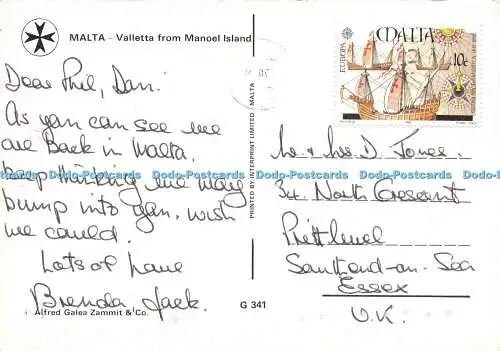 MALTA – Valletta from Manoel Island
Dear Phil, Dan.
As you can see we
are Back in Malta.
Keep thinking we may
bump into you, wish
we could.
Lots of Love
Brenda, Jack.
Alfred Galea Zammit & Co.
G 341
PRINTED BY INTERPRINT LIMITED / MALTA
EUROPA
MALTA
10c
Mr & Mrs D. Jones.
34 North Crescent
Prittlewel
Southend-on-Sea
Essex
U.K.
Dodo-Postcards Dodo-Postcards Dodo-Postcards Dodo-Postcards Dodo-Postcards